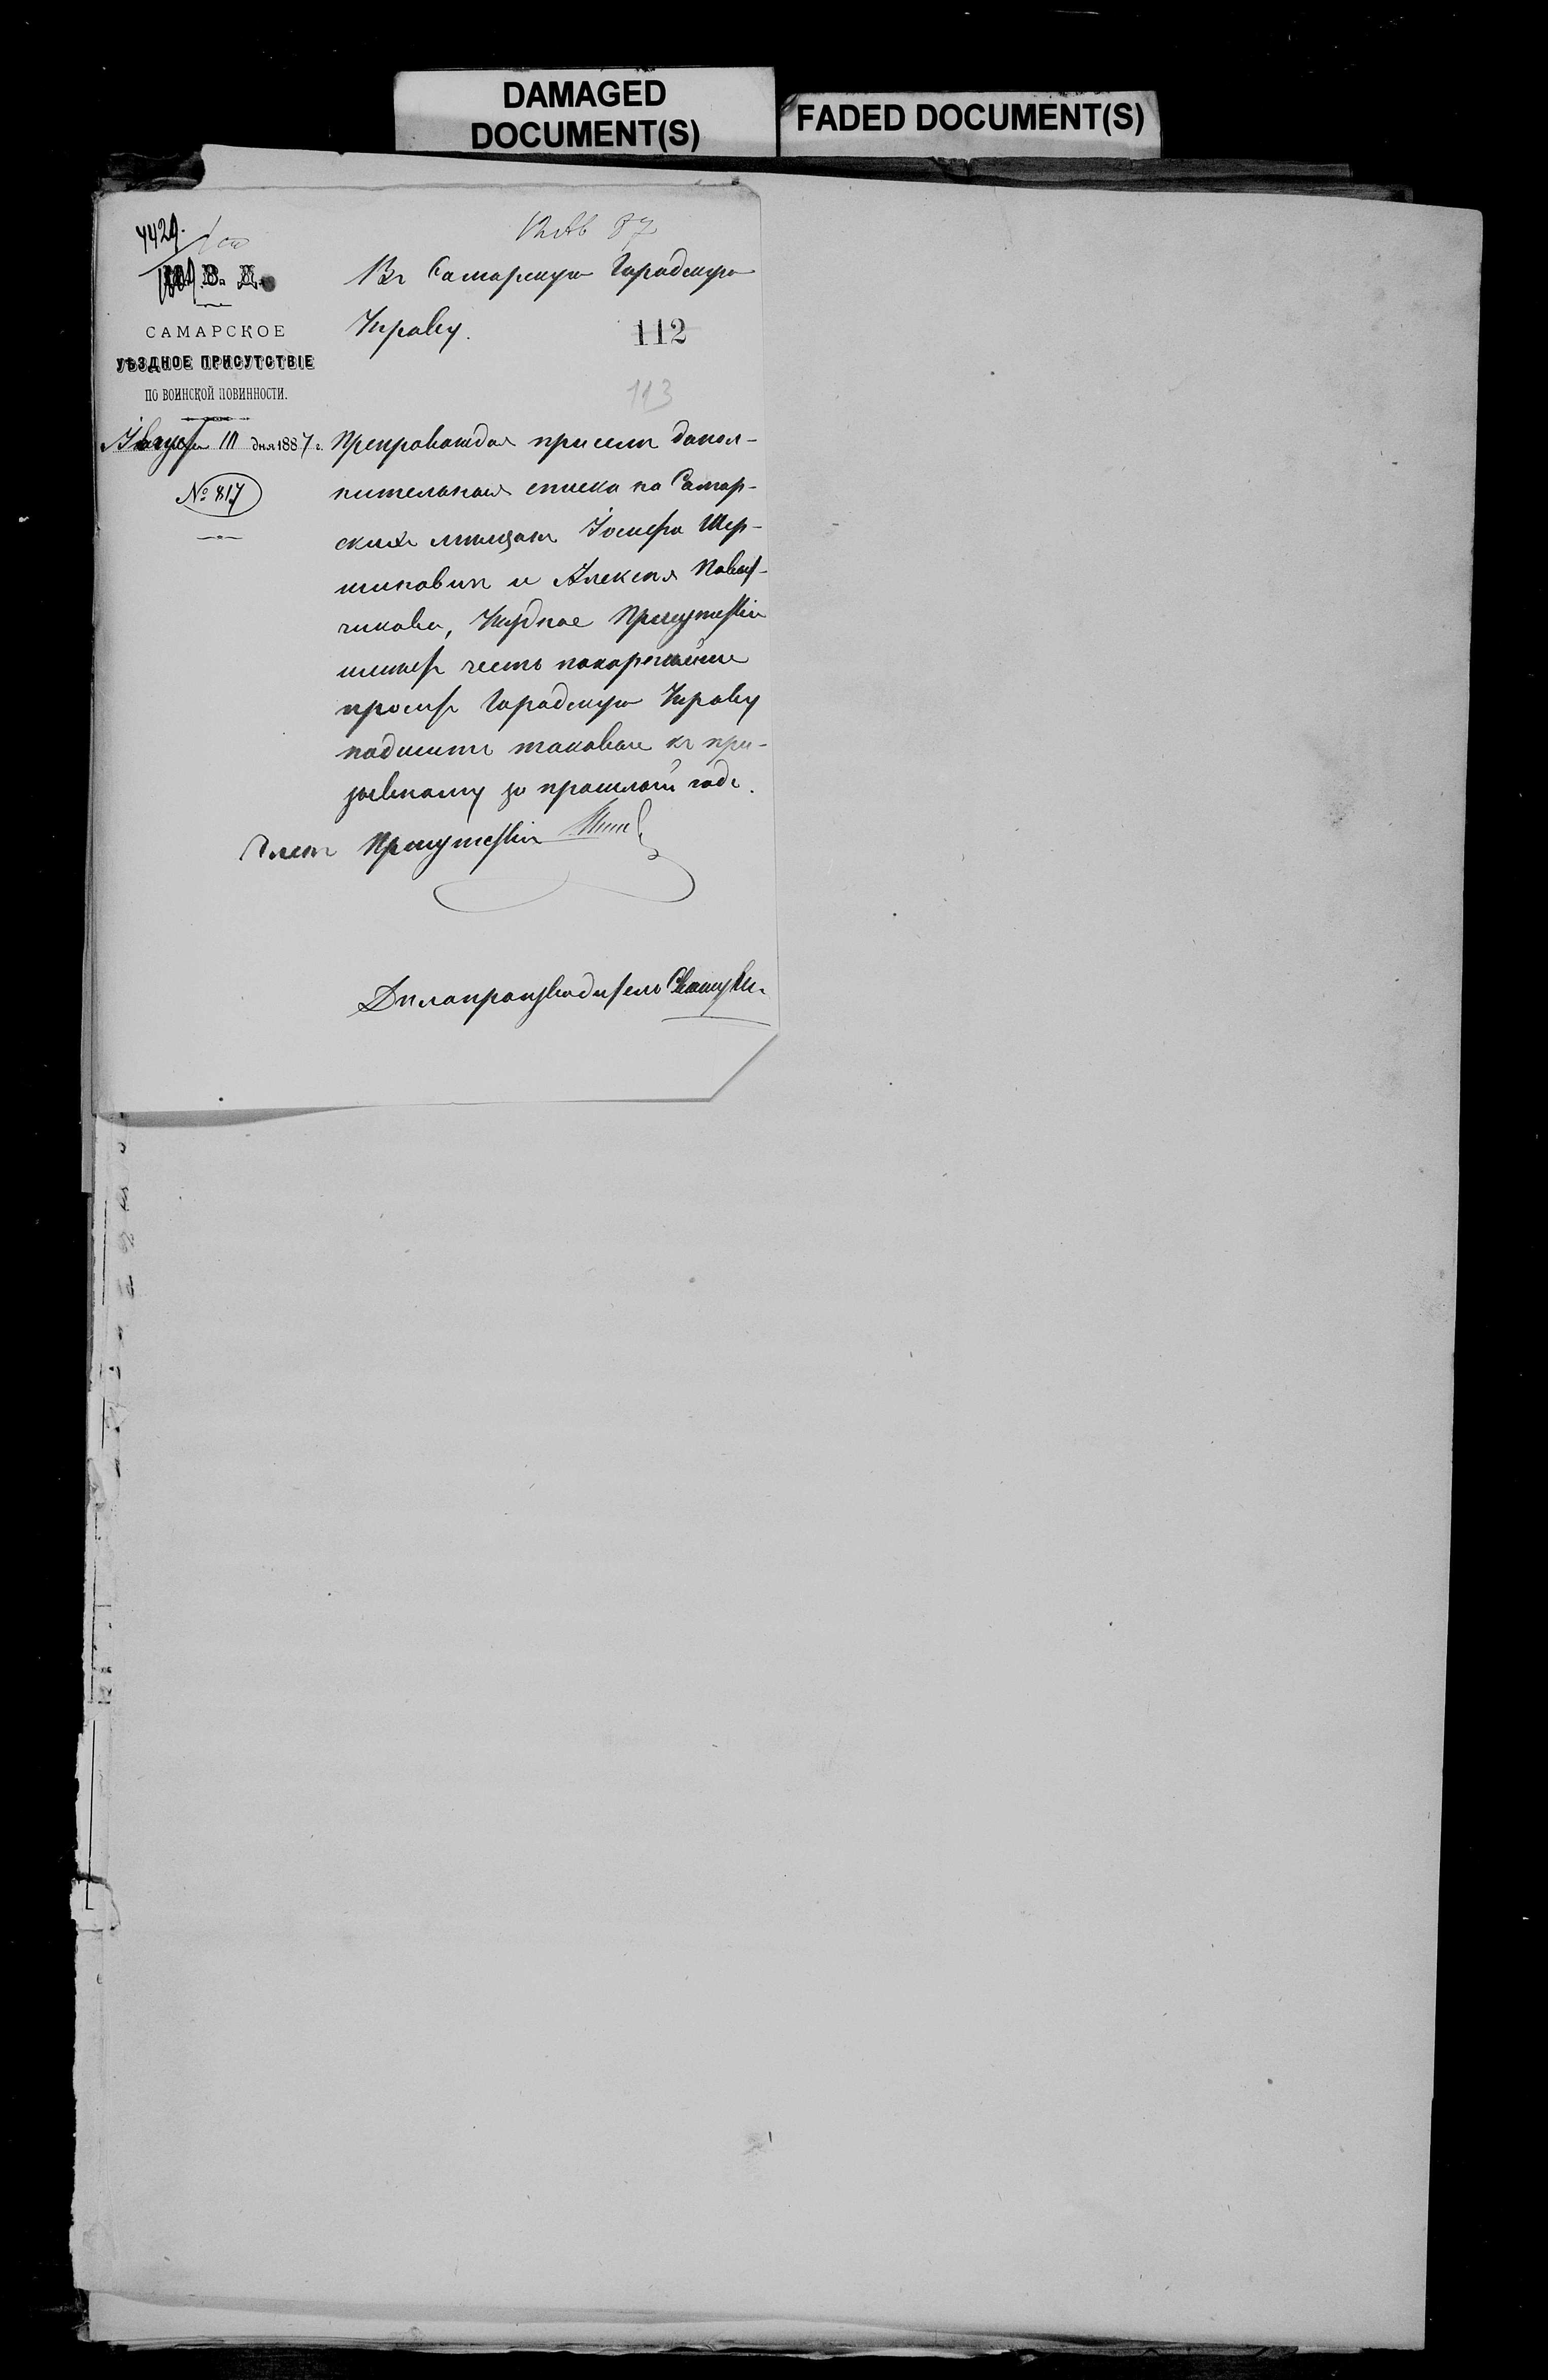 DAMAGED
DOCUMENT(S)
FADED DOCUMENT(S)
4429.
12 Ав 87
В. Д.
САМАРСКОЕ
УѢЗДНОЕ ПРИСУТСТВІЕ
ПО ВОИНСКОЙ ПОВИННОСТИ.
Августа 11 дня 1887 г.
№ 817
Въ Самарскую Городскую
Управу.
112
113
Препровождая присемъ допол-
нительные списки на Самар-
скихъ мѣщанъ Іосифа
и Алексѣя
чикова, Уѣздное Присутствіе
имѣетъ честь покорнѣйше
проситъ Городскую Управу
подшить таковые къ при-
зывному за прошлый годъ.
Членъ Присутствія
Дѣлопроизводитель